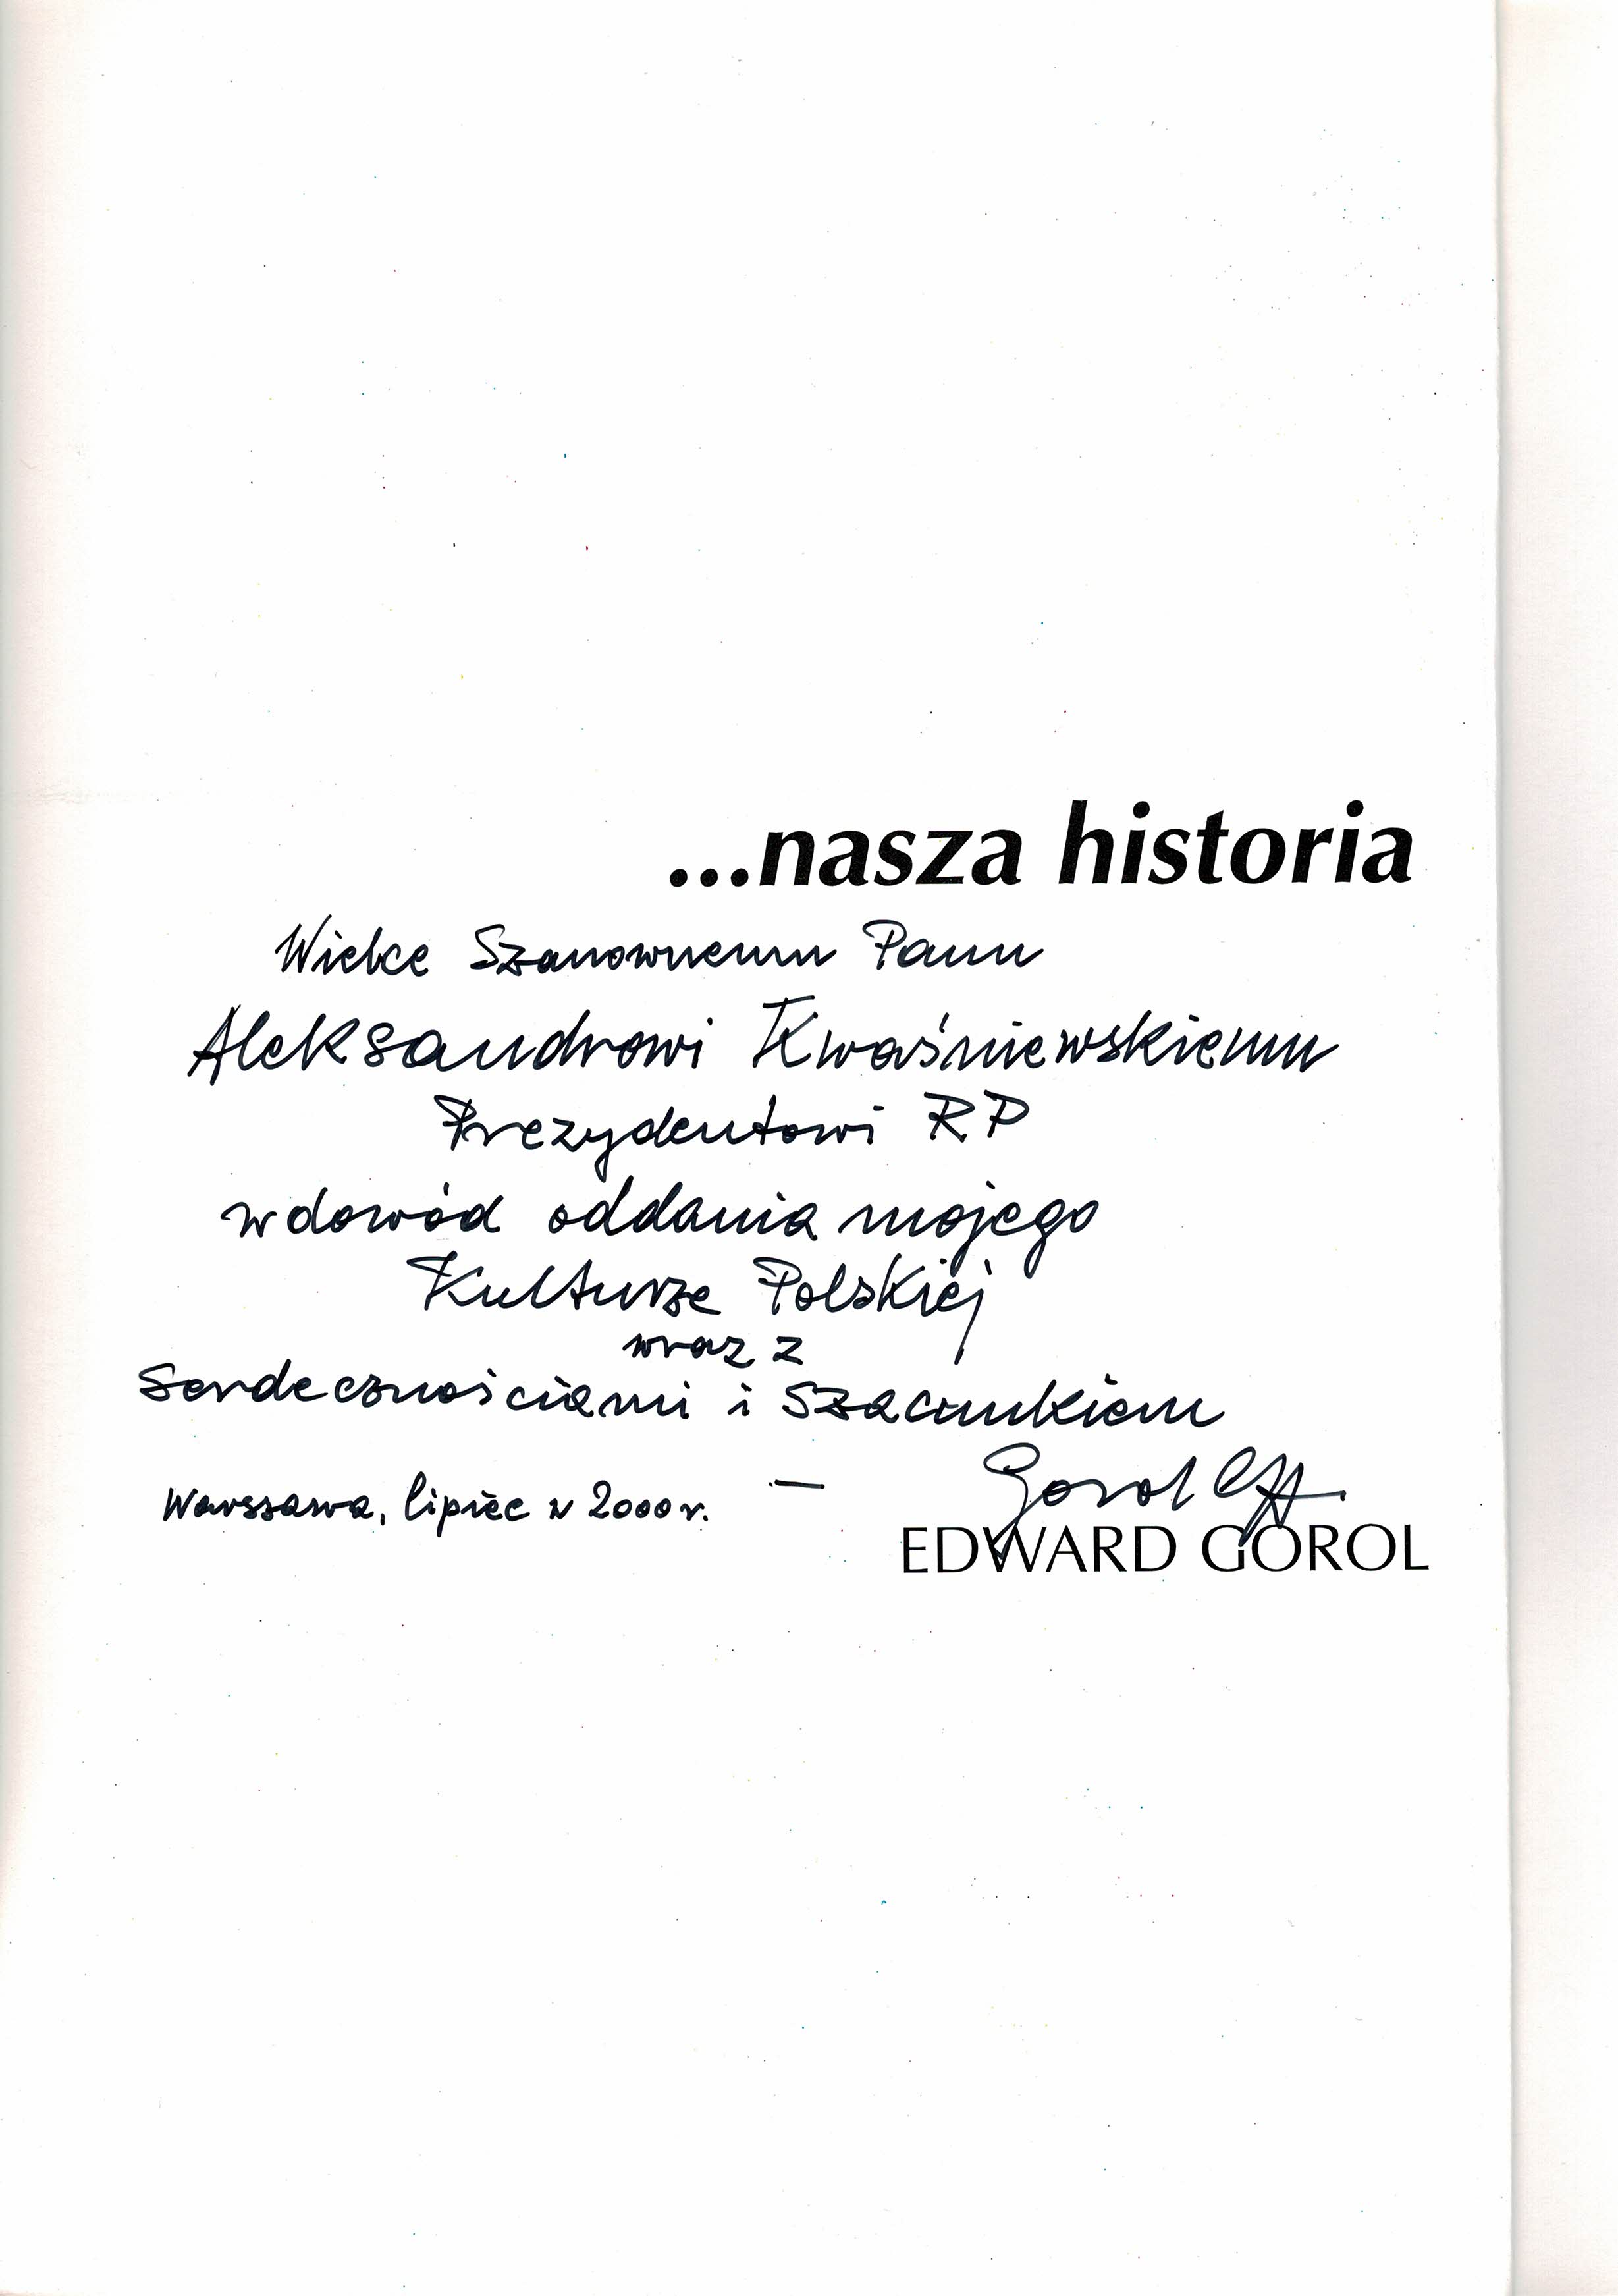 ...nasza historia
Wielce Szanownemu Panu
Aleksandrowi Kwaśniewskiemu
Prezydentowi RP
w dowód oddania mojego
Kulturze Polskiej
wraz z
Serdecznościami i Szacunkiem
Gorol
Warszawa, lipiec w 2000 r. —
EDWARD GOROL